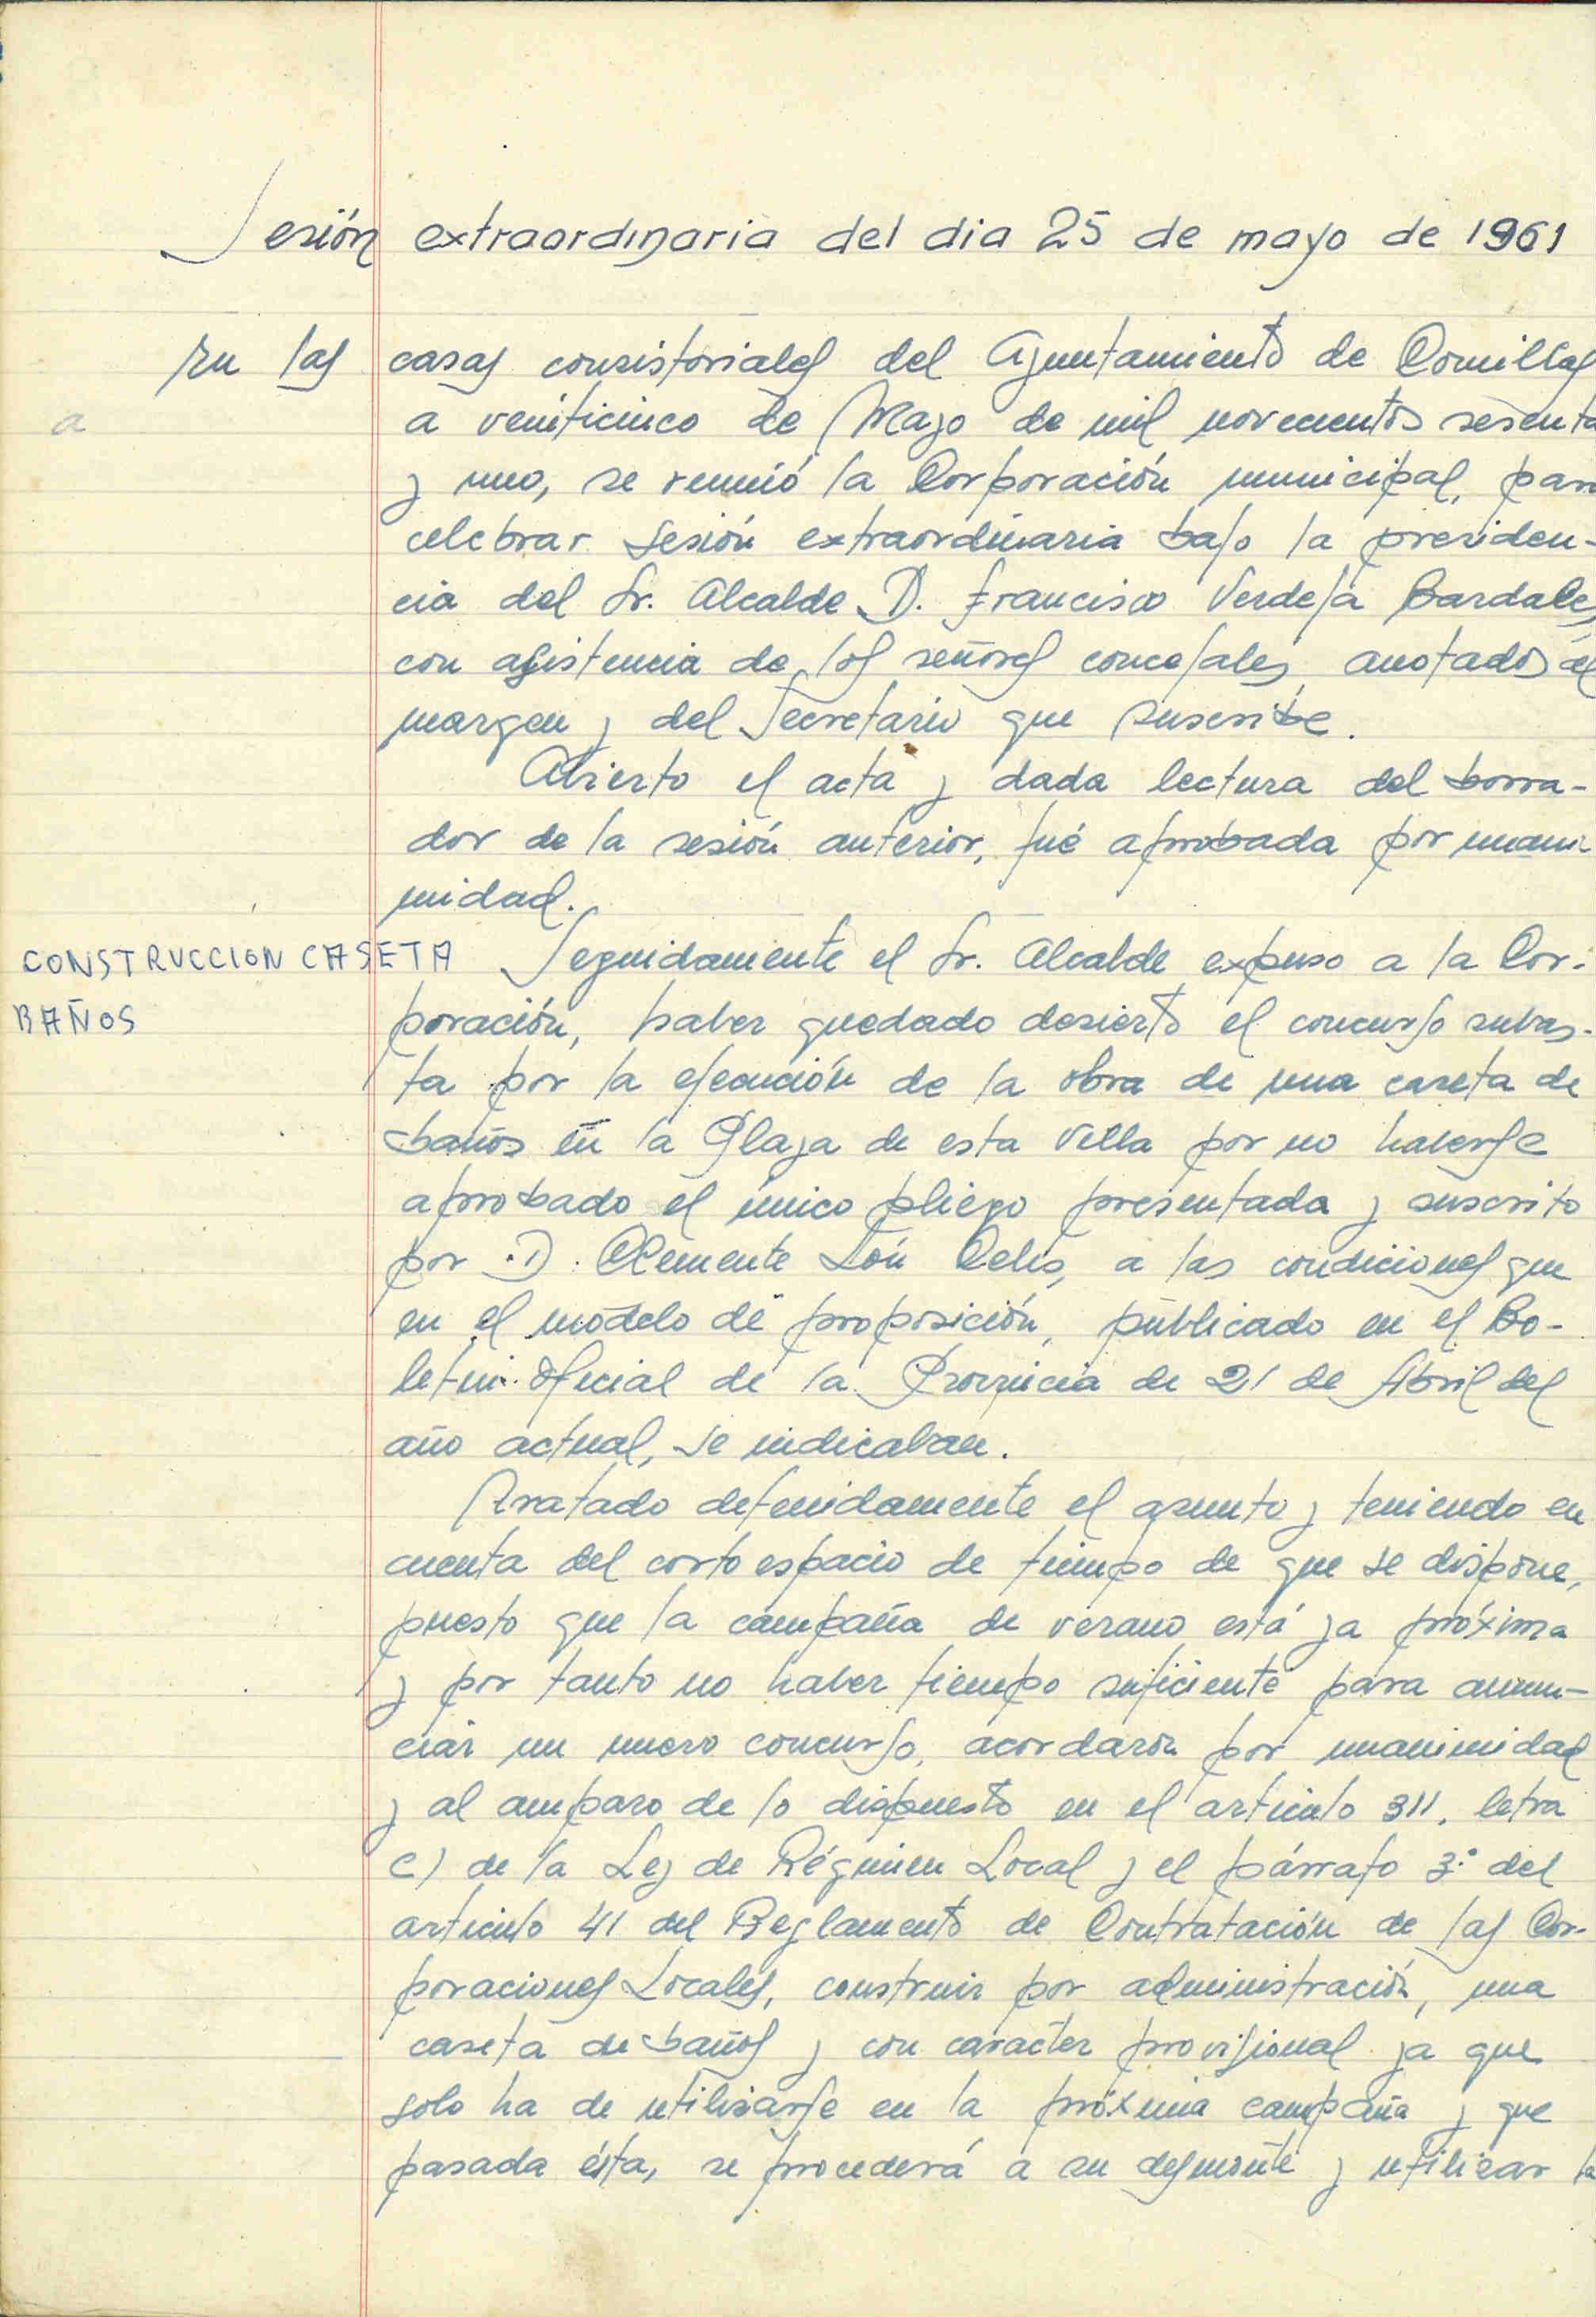 Sesión extraordinaria del dia 25 de mayo de 1961
En las casas consistoriales del Ayuntamiento de Comillas
a veinticinco de Mayo de mil novecientos sesenta
y uno, se reunió la Corporación municipal, para
celebrar sesión extraordinaria bajo la presiden-
cia del Sr. Alcalde D. Francisco Verdeja Bardales,
con asistencia de los señores concejales anotados al
margen y del Secretario que suscribe.
Abierto el acta y dada lectura del borra-
dor de la sesión anterior, fué aprobada por unani-
midad.
CONSTRUCCION CASETA
BAÑOS
Seguidamente el Sr. Alcalde expuso a la Cor-
poración, haber quedado desierto el concurso subas-
ta por la ejecución de la obra de una caseta de
baños en la Playa de esta Villa por no haberse
aprobado el único pliego presentada y suscrito
por D. Clemente Celis, a las condiciones que
en el modelo de proposición, publicado en el Bo-
letin Oficial de la Provincia de 21 de Abril del
año actual, se indicaban.
Tratado detenidamente el asunto y teniendo en
cuenta del corto espacio de tiempo de que se dispone,
puesto que la campaña de verano está ya próxima
y por tanto no haber tiempo suficiente para anun-
ciar un nuevo concurso, acordaron por unanimidad
y al amparo de lo dispuesto en el articulo 311, letra
c) de la Ley de Régimen Local y el párrafo 3.º del
articulo 41 del Reglamento de Contratación de las Cor-
poraciones Locales, construir por administración, una
caseta de baños y con caracter provisional ya que
solo ha de utilizarse en la próxima campaña y que
pasada ésta, se procederá a su desmonte y utilizar la